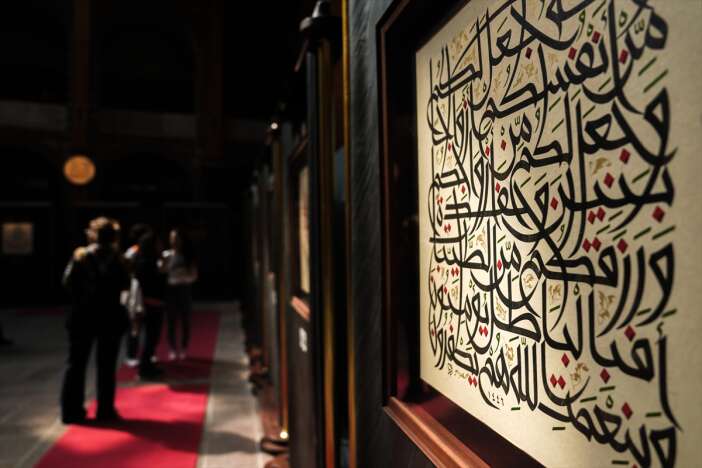 جعل لكم
من أنفسكم أزواجا
وجعل لكم من أزواجكم
بنين وحفدة
ورزقكم من الطيبات
أفبالباطل يؤمنون
وبنعمت الله هم يكفرون